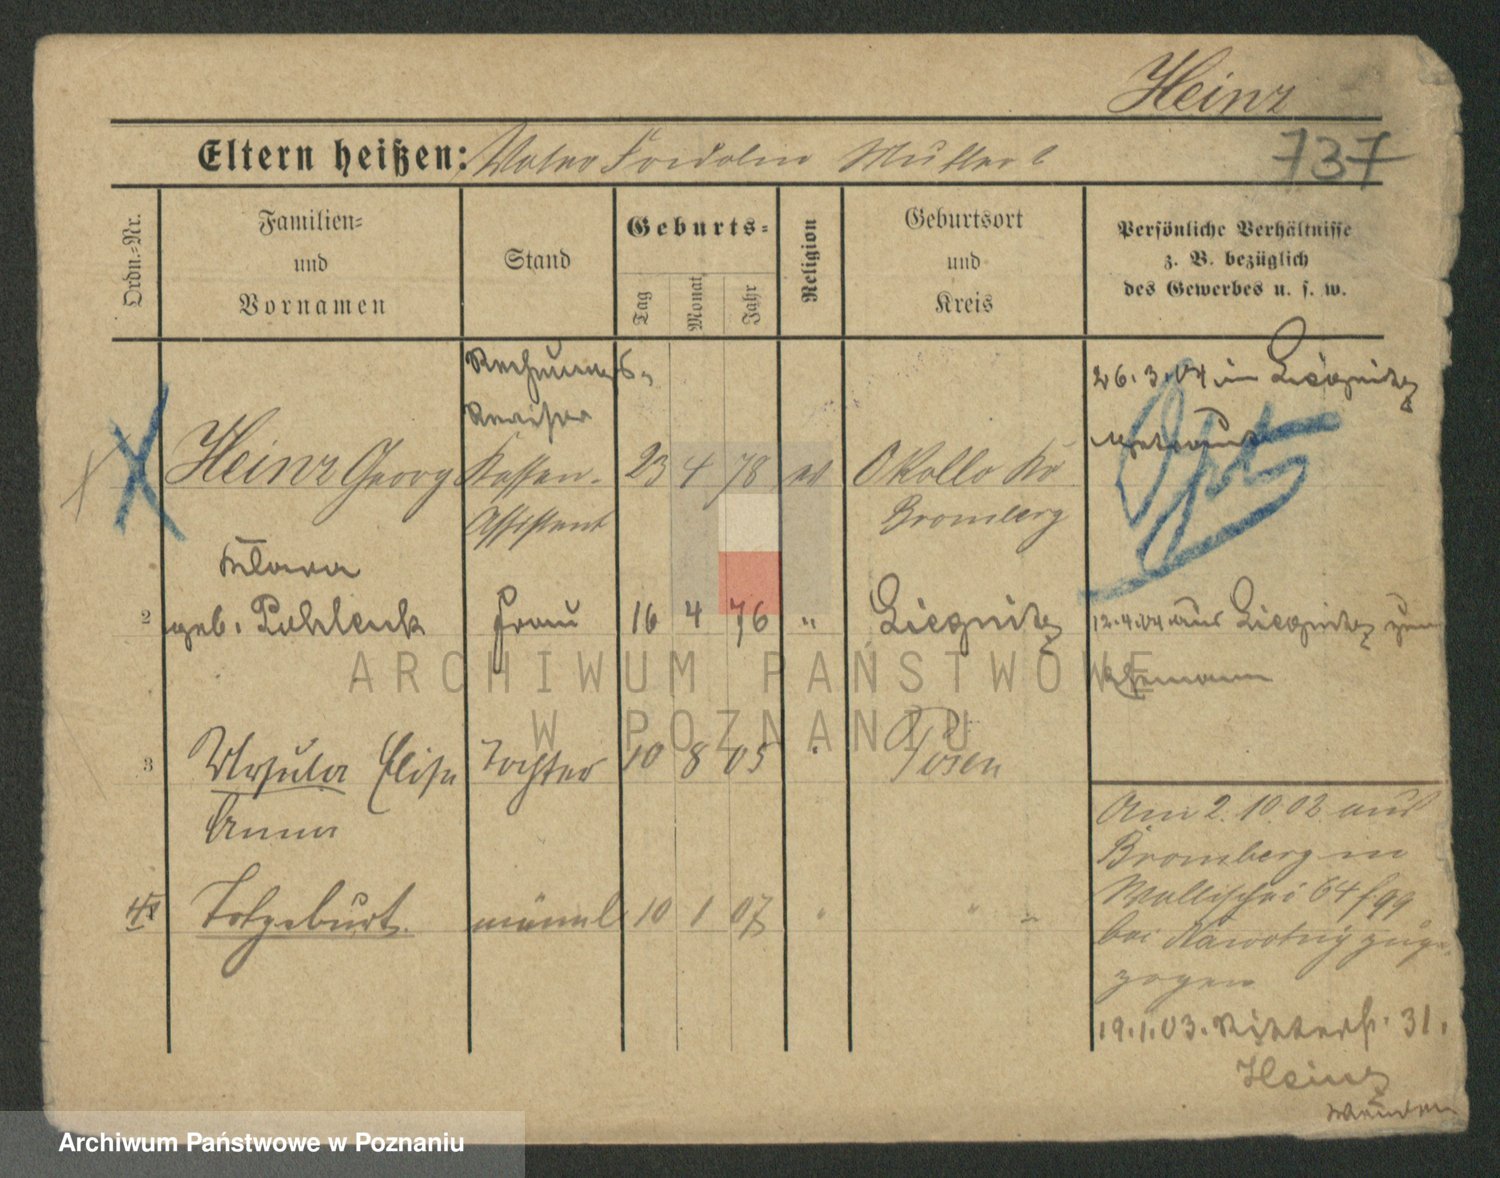 Heinz
Eltern heißen: Vater Fridolin Mutter
737
Ordn.-Nr.
Familien-
und
Vornamen
Stand
Geburts-
Tag
Monat
Jahr
Religion
Geburtsort
und
Kreis
Persönliche Verhältnisse
z. B. bezüglich
des Gewerbes u. s. w.
Rechnungs-
Revisor
Heinz Georg Kassen- 23 4 78 ev Okollo Kr
Assistent Bromberg
26.3.04 in Liegnitz
getraut
Klara
2 geb. Pohlenk Frau 16 4 76 " Liegnitz 12.4.04 aus Liegnitz zum
Ehemann
3 Ursula Elisa Tochter 10 8 05 " Posen
Anna
4 Totgeburt männl 10 1 07 " " "
Am 2.10.02 aus
Bromberg in
Wallischei 64/
bei zuge-
zogen
19.1.03. Ritterstr. 31.
Heinz
ARCHIWUM PAŃSTWOWE
W POZNANIU
Archiwum Państwowe w Poznaniu